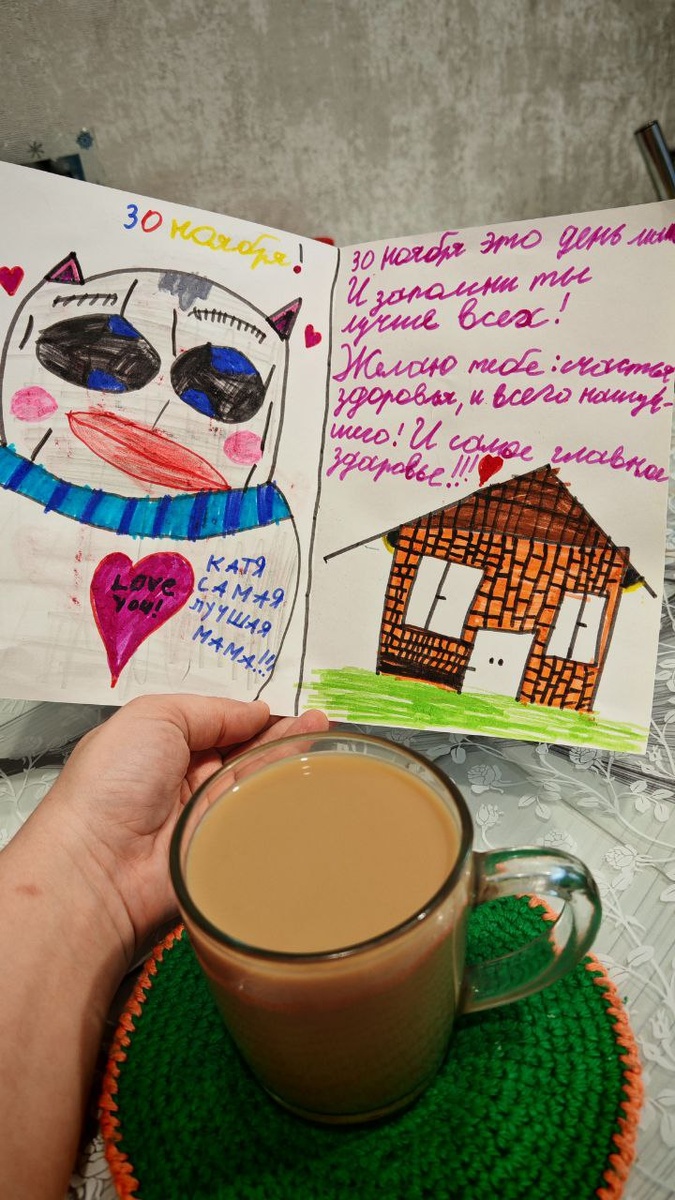 30 ноября!
LOVE
YOU!
КАТЯ
САМАЯ
ЛУЧШАЯ
МАМА!!!
30 ноября это день
И запомни ты
лучше всех!
Желаю тебе: счастья
здоровья, и всего наилув-
шего! И самое главное
здаровье!!!